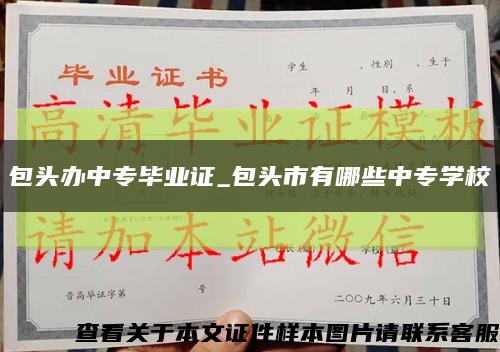 学生　　　，性别　，生于
毕业证书
年　月　日、系
高清毕业证模板
包头办中专毕业证_包头市有哪些中专学校
请加本站微信
学校（章）
晋高毕证字第　　　号
二〇〇九年六月三十日
查看关于本文证件样本图片请联系客服